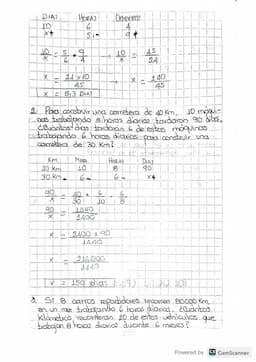 DIAS HORAS OBREROS
10 6 4
x+ 5- 9+
10/x = 5/6 · 9/4 → 10/x = 45/24
x = 24×10/45 → x = 240/45
x = 5,3 DIAS
2. Para construir una carretera de 40 Km, 10 máqui-
nas trabajando 8 horas diarias tardaron 90 días,
¿Cuántos días tardarán 6 de estas máquinas
trabajando 6 horas diarias para construir una
carretera de 30 Km?
Km Maq Horas Dias
10 8 90
30 Km 6 - 6 - x+
90/x = 40/30 · 6/10 · 6/8
90/x = 1440/2400
x = 2400 × 90/1440
x = 216.000/1440
x = 150 días
3. Si 8 carros repartidores recorren 80000 Km
en un mes trabajando 6 horas diarias. ¿Cuántos
Kilómetros recorrerán 20 de estos vehículos que
trabajan 8 horas diarias durante 6 meses?
Powered by CamScanner